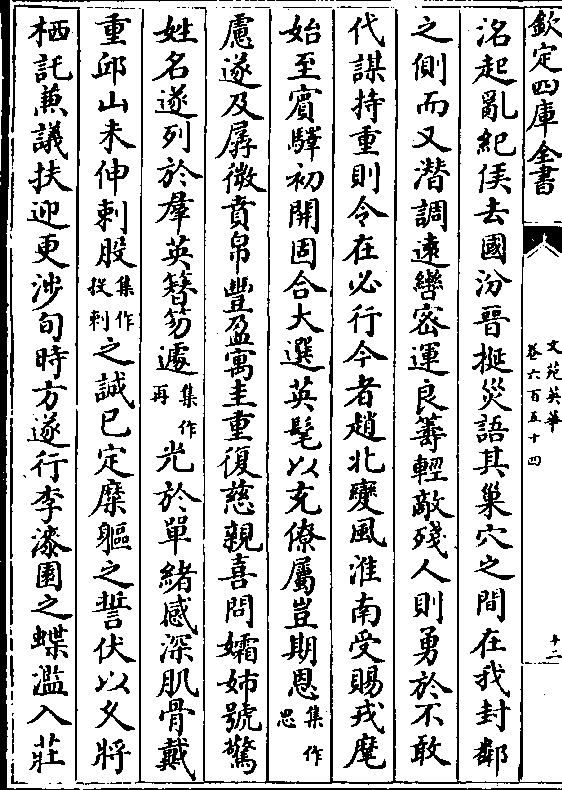 欽定四庫全書
文苑英華
卷六百五十四
十二
洺起亂紀侯去國汾晉挻災語其巢穴之間在我封鄰
之側而又潛調遠轡密運良籌輕敵殘人則勇於不敢
代謀持重則令在必行今者趙北變風淮南受賜戎麾
始至賓驛初開固合大選英髦以充僚屬豈期恩集作忠
慮遂及孱微賁帛豐盈寓圭重復慈親喜問孀姊號驚
姓名遂列於羣英簪笏遽集作再光於單緒感深肌骨戴
重邱山未伸刺股集作投刺之誠已定糜軀之誓伏以久將
栖託兼議扶迎更涉旬時方遂行李漆園之蝶濫入莊